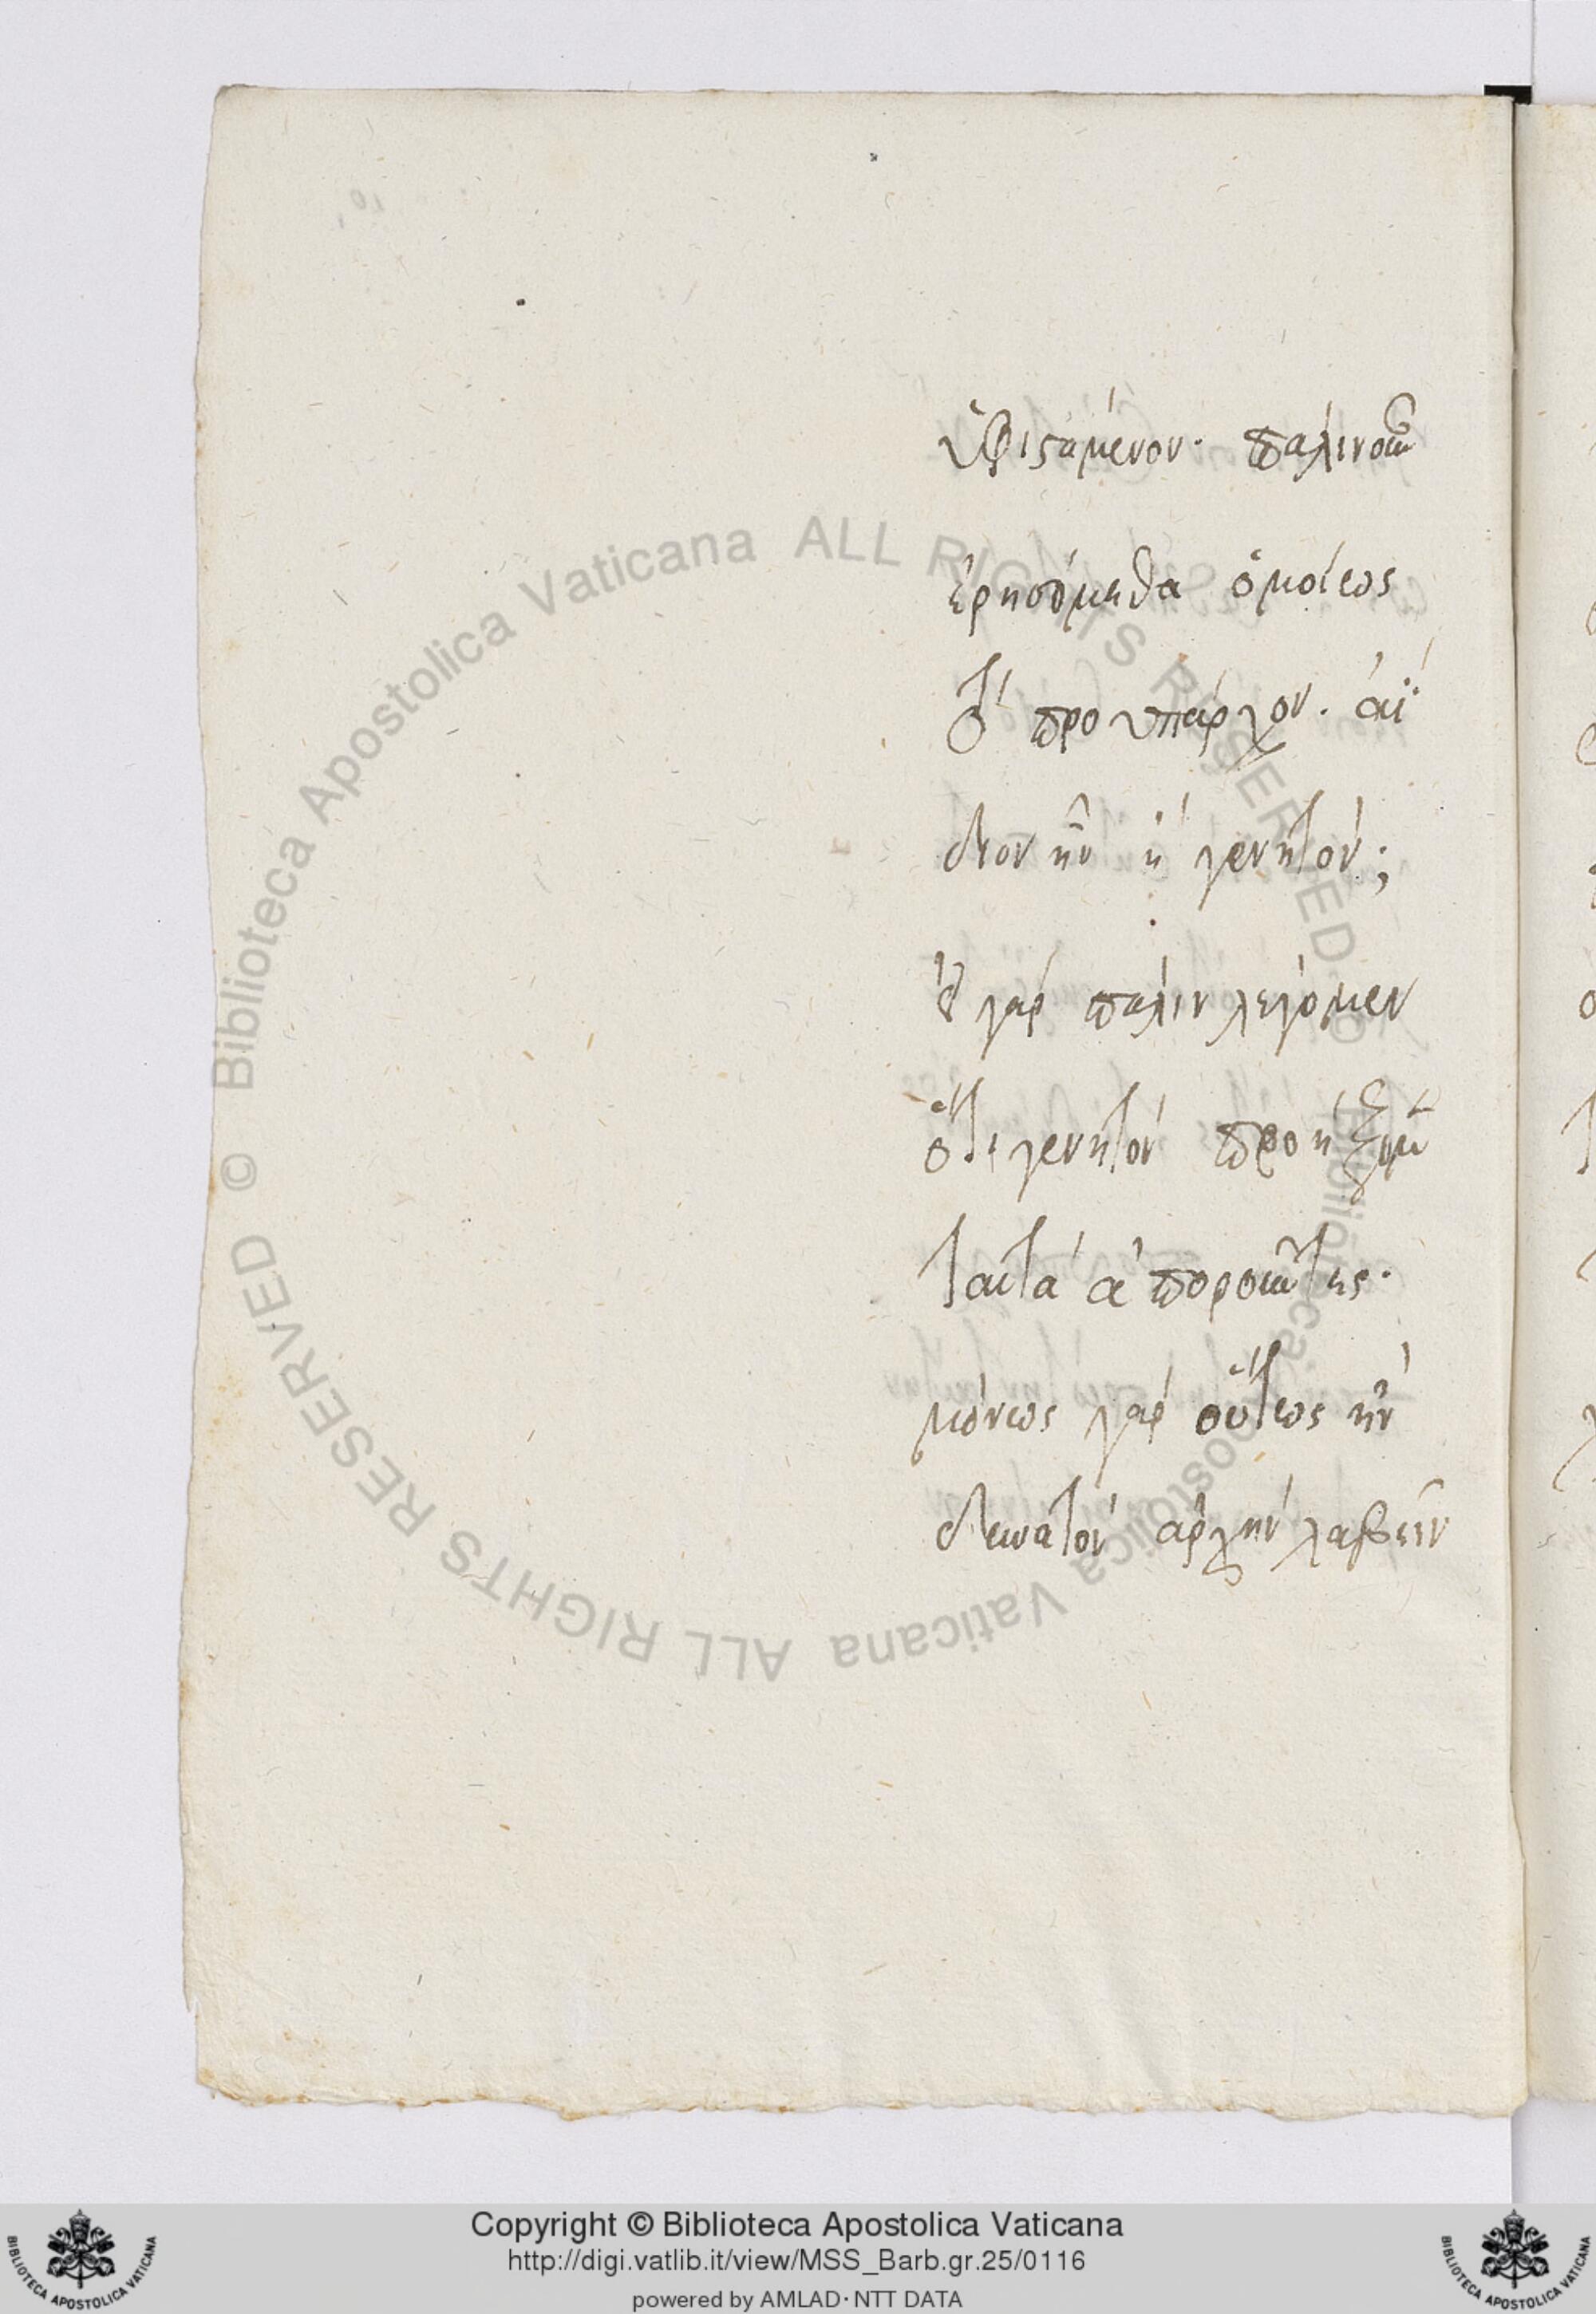 ὑφιϛάμενον. πάλιν οὖν
ἐρησόμεθα ὁμοίως
τὸ προυπάρχον. ἀΐ
διον ἦν ἢ γενητόν;
εἰ γὰρ πάλιν λέγομεν
ὅτι γενητόν προήξομεν
ταυτὰ ἀποροῦντες.
μόνως γὰρ οὕτως ἦν
δυνατόν ἀρχὴν λαβεῖν
Biblioteca Apostolica Vaticana ALL RIGHTS RESERVED ©
Biblioteca Apostolica Vaticana ALL RIGHTS RESERVED ©
Copyright © Biblioteca Apostolica Vaticana
http://digi.vatlib.it/view/MSS_Barb.gr.25/0116
powered by AMLAD·NTT DATA
BIBLIOTECA APOSTOLICA VATICANA
BIBLIOTECA APOSTOLICA VATICANA